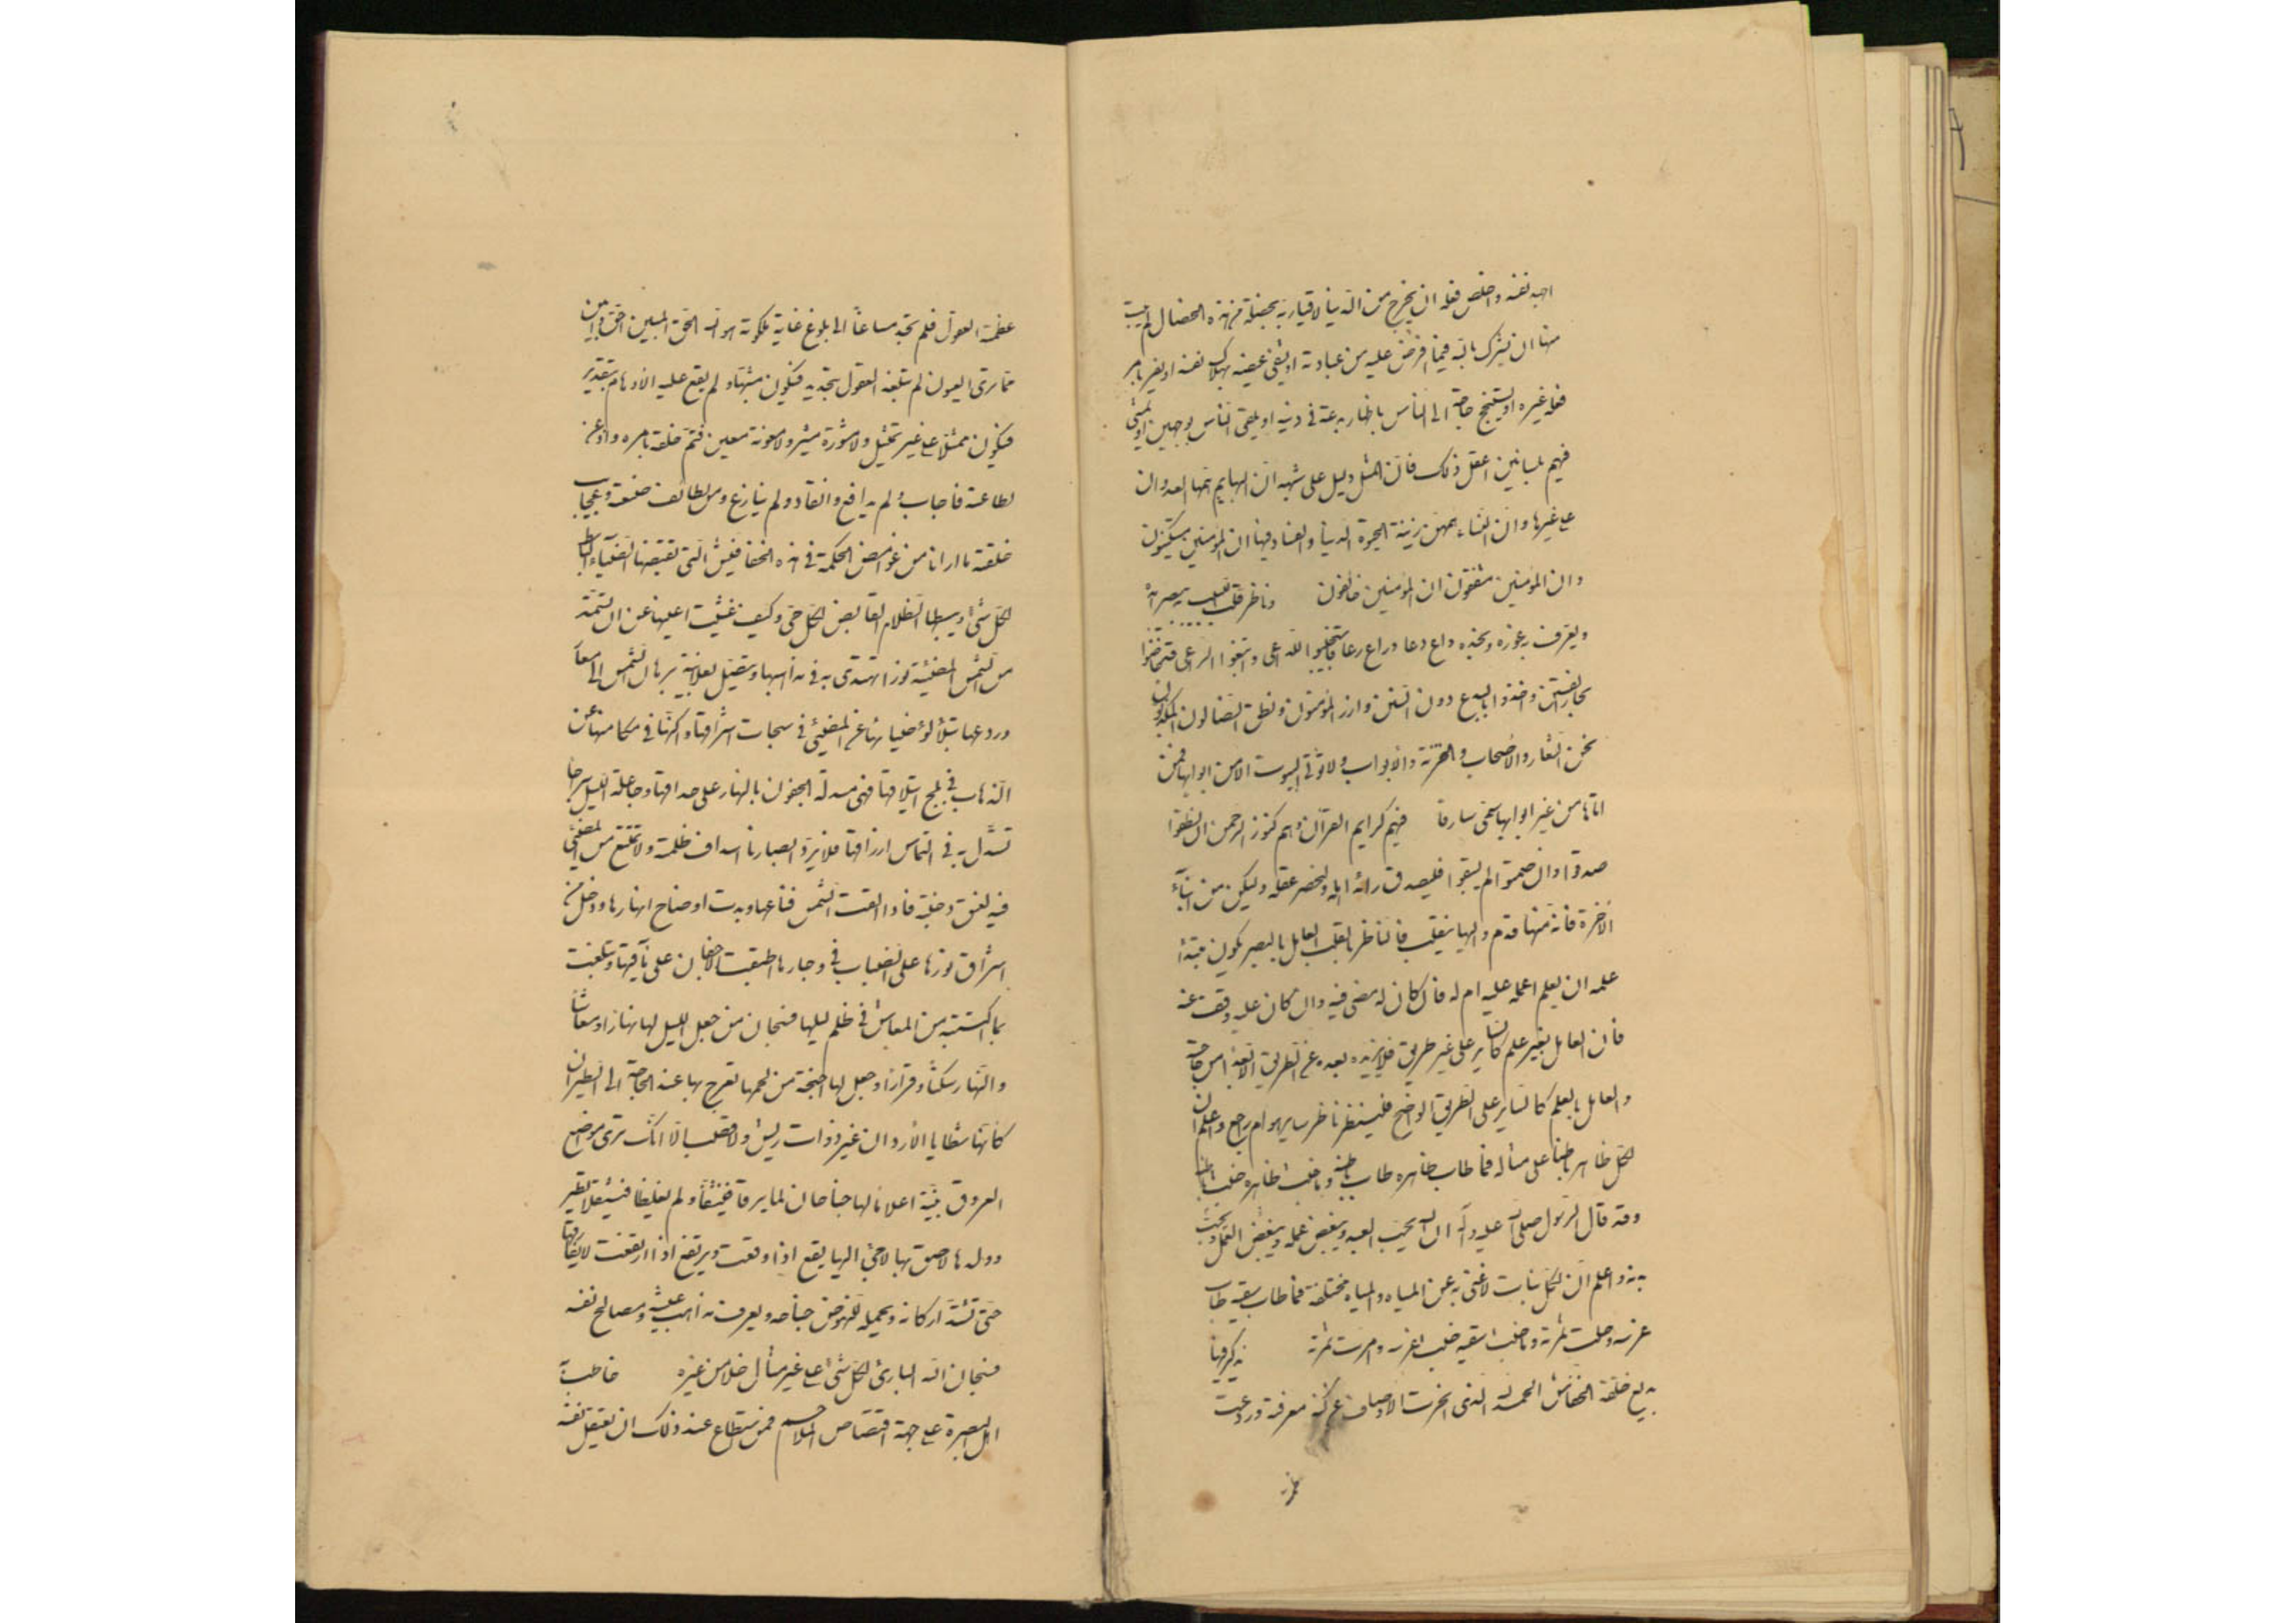 اجهد نفسه واخلص فعله ان يخرج من الدنيا لاقيا ربه بخصلة من هذه الخصال لم يتب
منها ان يشرك بالله فيما افترض عليه من عبادته او يشفى غيظه بهلاك نفسه او يقر بامر
فعله غيره او يستنجح حاجة الى الناس باظهار بدعة فى دينه او يلقى الناس بوجهين او يمشى
فيهم بلسانين اعقل ذلك فان المثل دليل على شبهه ان البهايم همها العدوان
على غيرها وان النساء همهن زينة الحيوة الدنيا والفساد فيها ان المؤمنين مستكينون
وان المؤمنين مشفقون ان المؤمنين خائفون وناظر قلب اللبيب به يبصر امده
ويعرف غوره ونجده داع دعا وراع رعا فاستجيبوا للداعى واتبعوا الراعى قد خاضوا
بحار الفتن واخذوا بالبدع دون السنن وارز المؤمنون ونطق الضالون المكذبون
نحن الشعار والاصحاب والخزنة والابواب ولا تؤتى البيوت الا من ابوابها فمن
اتاها من غير ابوابها سمى سارقا فيهم كرايم القرآن وهم كنوز الرحمن ان نطقوا
صدقوا وان صمتوا لم يسبقوا فليصدق رائد اهله وليحضر عقله وليكن من ابناء
الآخرة فانه منها قدم واليها ينقلب فالناظر بالقلب العامل بالبصر يكون مبتدأ
علمه ان يعلم اعمله عليه ام له فان كان له مضى فيه وان كان عليه وقف عنه
فان العامل بغير علم كالسائر على غير طريق فلا يزيده بعده عن الطريق الا بعدا من حاجته
والعامل بالعلم كالساير على الطريق الواضح فلينظر ناظر اساير هو ام راجع واعلم ان
لكل ظاهر باطنا على مثاله فما طاب ظاهره طاب باطنه وما خبث ظاهره خبث باطنه
وقد قال الرسول صلى الله عليه وآله ان الله يحب العبد ويبغض عمله ويبغض العمل ويحب
بدنه واعلم ان لكل نبات لا غنى به عن المياه والمياه مختلفة فما طاب سقيه طاب
غرسه وحلت ثمرته وما خبث سقيه خبث غرسه وامرت ثمرته يذكر فيها
بديع خلقة الخفاش الحمد لله الذى انحسرت الاوصاف عن كنه معرفته وردعت
عظمته العقول فلم تجد مساغا الى بلوغ غاية ملكوته هو الله الحق المبين احق وابين
مما ترى العيون لم تبلغه العقول بتحديد فيكون مشبها ولم يقع عليه الاوهام بتقدير
فيكون ممثلا على غير تمثيل ولا مشورة مشير ولا معونة معين فتم خلقه بامره واذعن
لطاعته فاجاب ولم يدافع وانقاد ولم ينازع ومن لطائف صنعته وعجايب
خلقته ما ارانا من غوامض الحكمة فى هذه الخفافيش التى يقبضها الضياء الباسط
لكل شئ ويبسطها الظلام القابض لكل حى وكيف غشيت اعينها عن ان تستمد
من الشمس المضيئة نورا تهتدى به فى مذاهبها وتتصل بعلانية برهان الشمس الى معارفها
وردعها بتلألؤ ضيائها عن المضىّ فى سبحات اشراقها واكنها فى مكامنها عن
الذهاب فى بلج ائتلاقها فهى مسدلة الجفون بالنهار على حداقها وجاعلة الليل سراجا
تستدل به فى التماس ارزاقها فلا يرد ابصارها اسداف ظلمته ولا تمتنع من المضى
فيه لغسق دجنته فاذا القت الشمس قناعها وبدت اوضاح نهارها ودخل من
اشراق نورها على الضباب فى وجارها اطبقت الاجفان على مآقيها وتبلغت
بما اكتسبته من المعاش فى ظلم لياليها فسبحان من جعل الليل لها نهارا ومعاشا
والنهار سكنا وقرارا وجعل لها اجنحة من لحمها تعرج بها عند الحاجة الى الطيران
كانها شظايا الآذان غير ذوات ريش ولا قصب الا انك ترى مواضع
العروق بينة اعلاما لها جناحان لما يرقا فينشقا ولم يغلظا فيثقلا تطير
وولدها لاصق بها لاجئ اليها يقع اذا وقعت ويرتفع اذا ارتفعت لا يفارقها
حتى تشتد اركانه ويحمله للنهوض جناحه ويعرف مذاهب عيشه ومصالح نفسه
فسبحان الله البارئ لكل شئ على غير مثال خلا من غيره خاطب به
اهل البصرة على جهة اقتصاص الملاحم فمن استطاع عند ذلك ان يعتقل نفسه